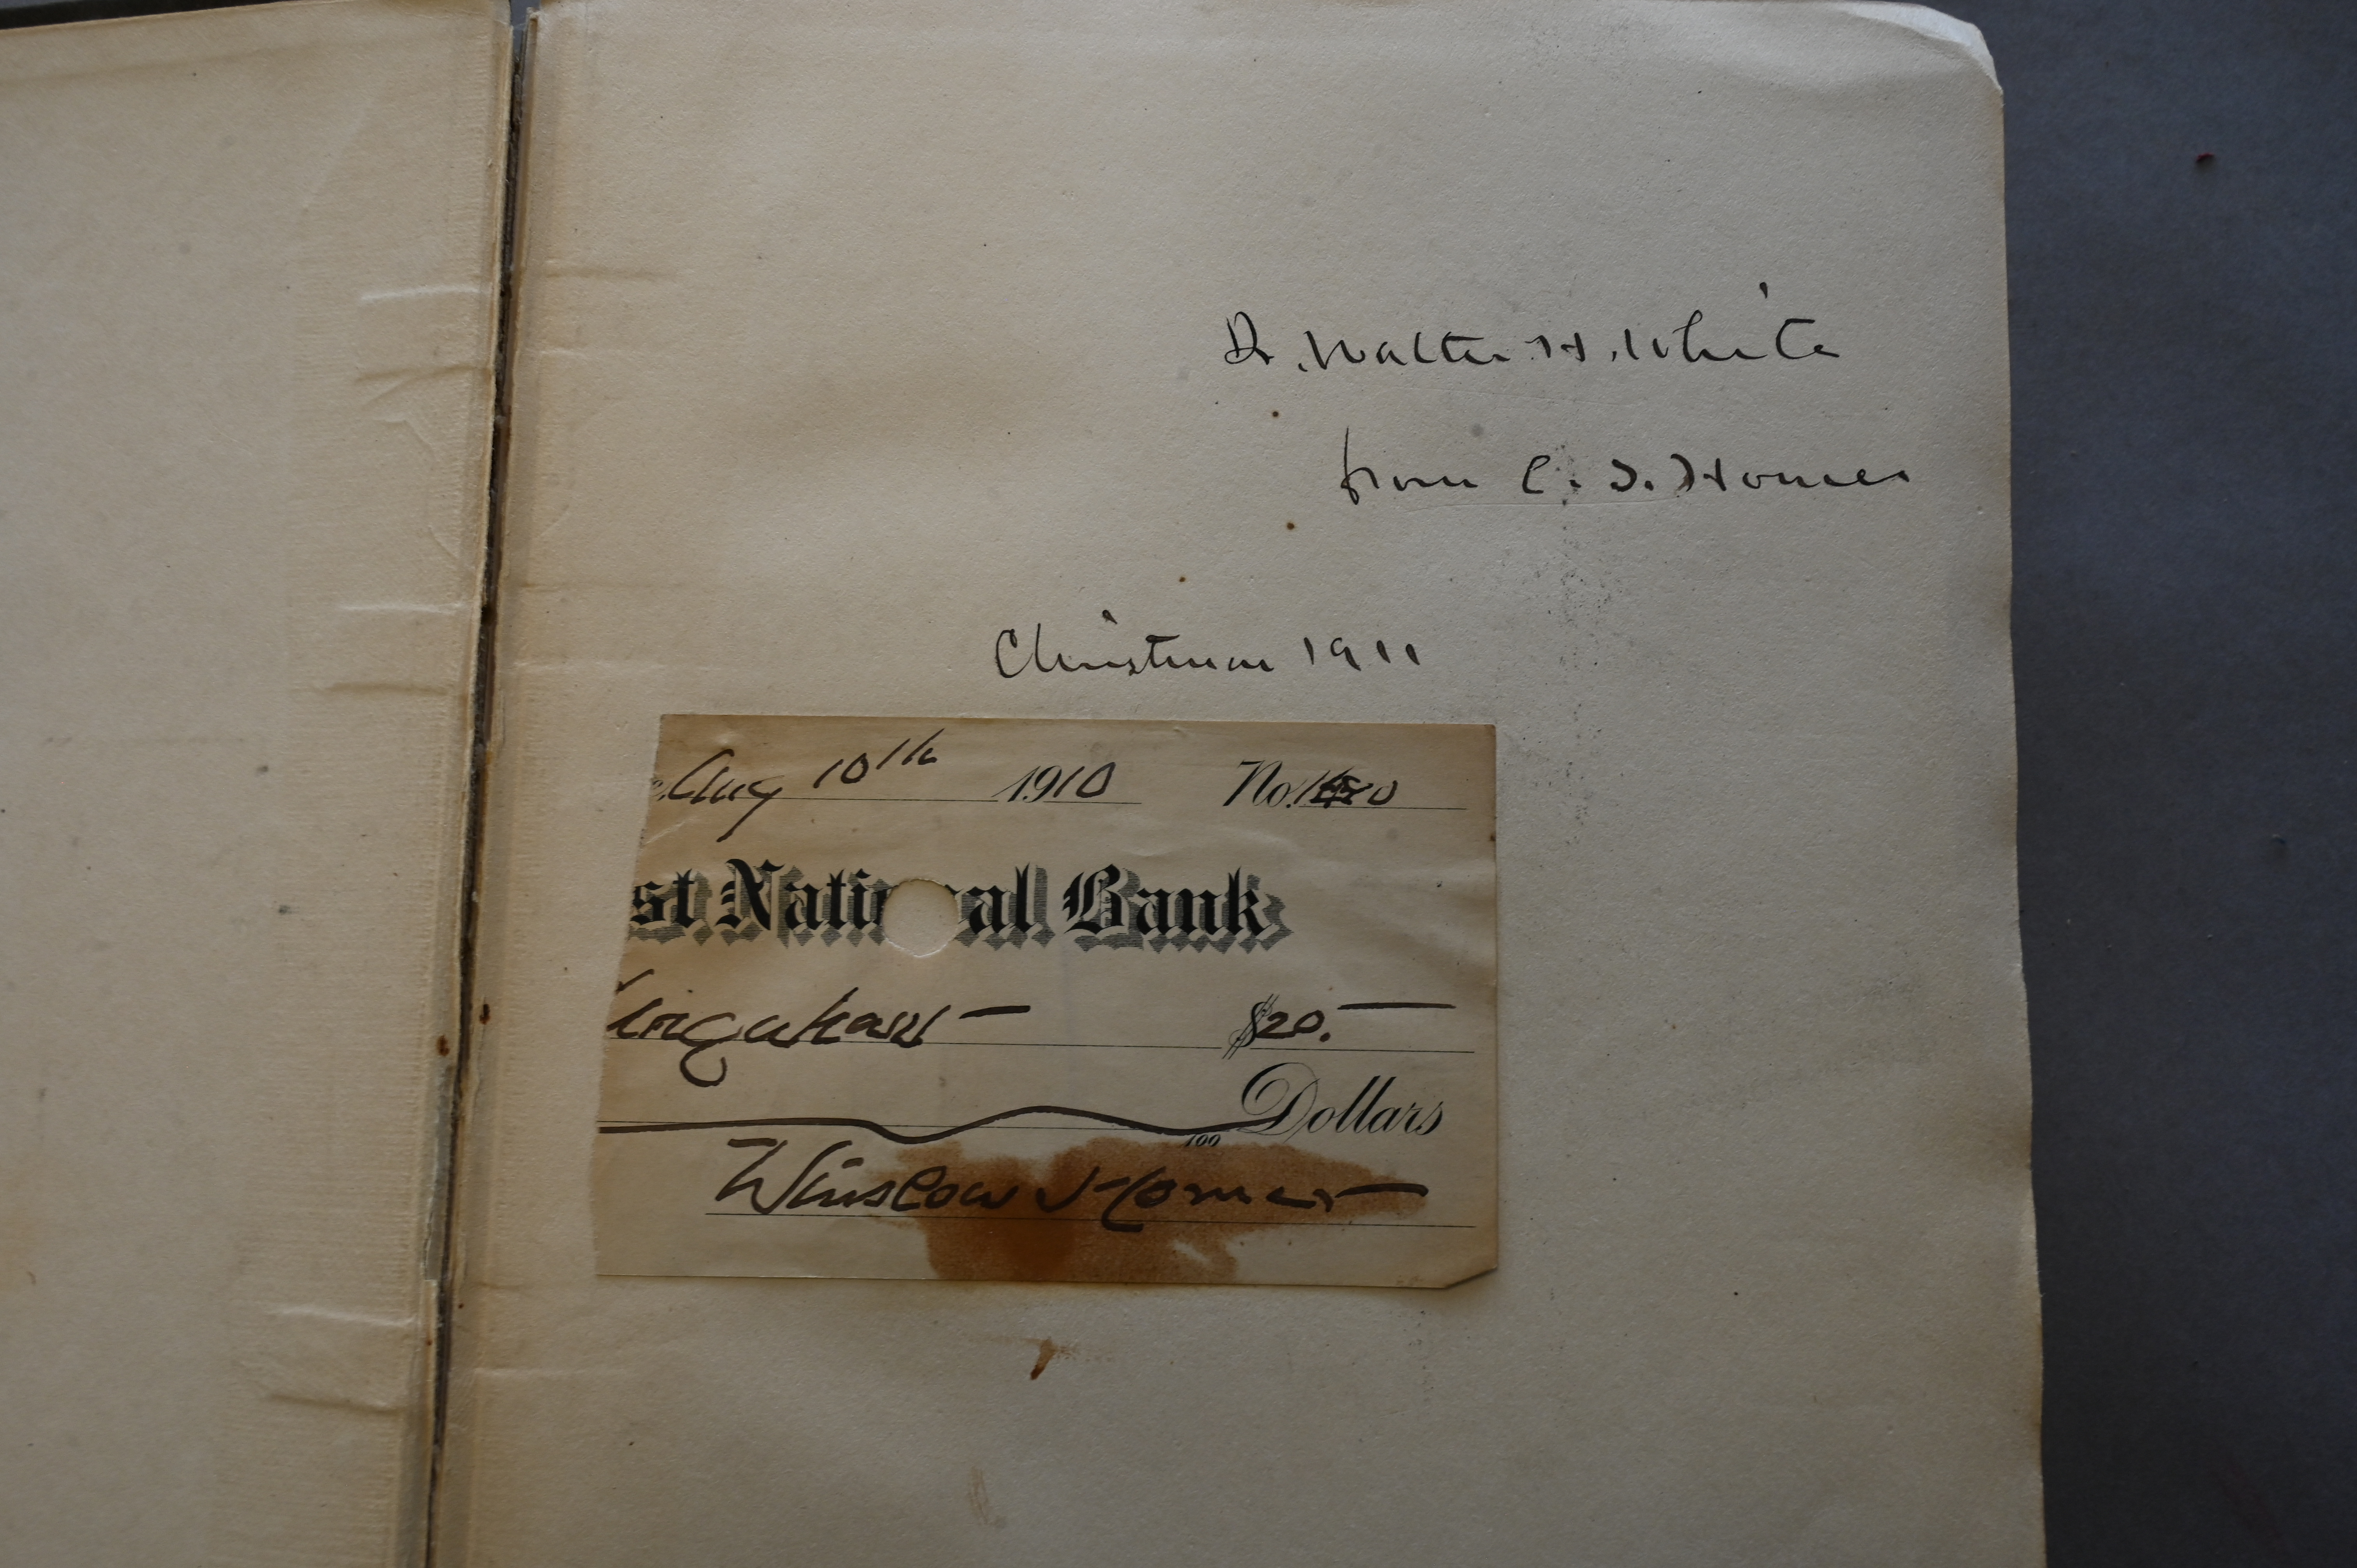 Dr. Walter H. White
from C. S. Homer
Christmas 1911
Aug 10th 1910 No.
st National Bank
$20.
100 Dollars
Winslow Homer